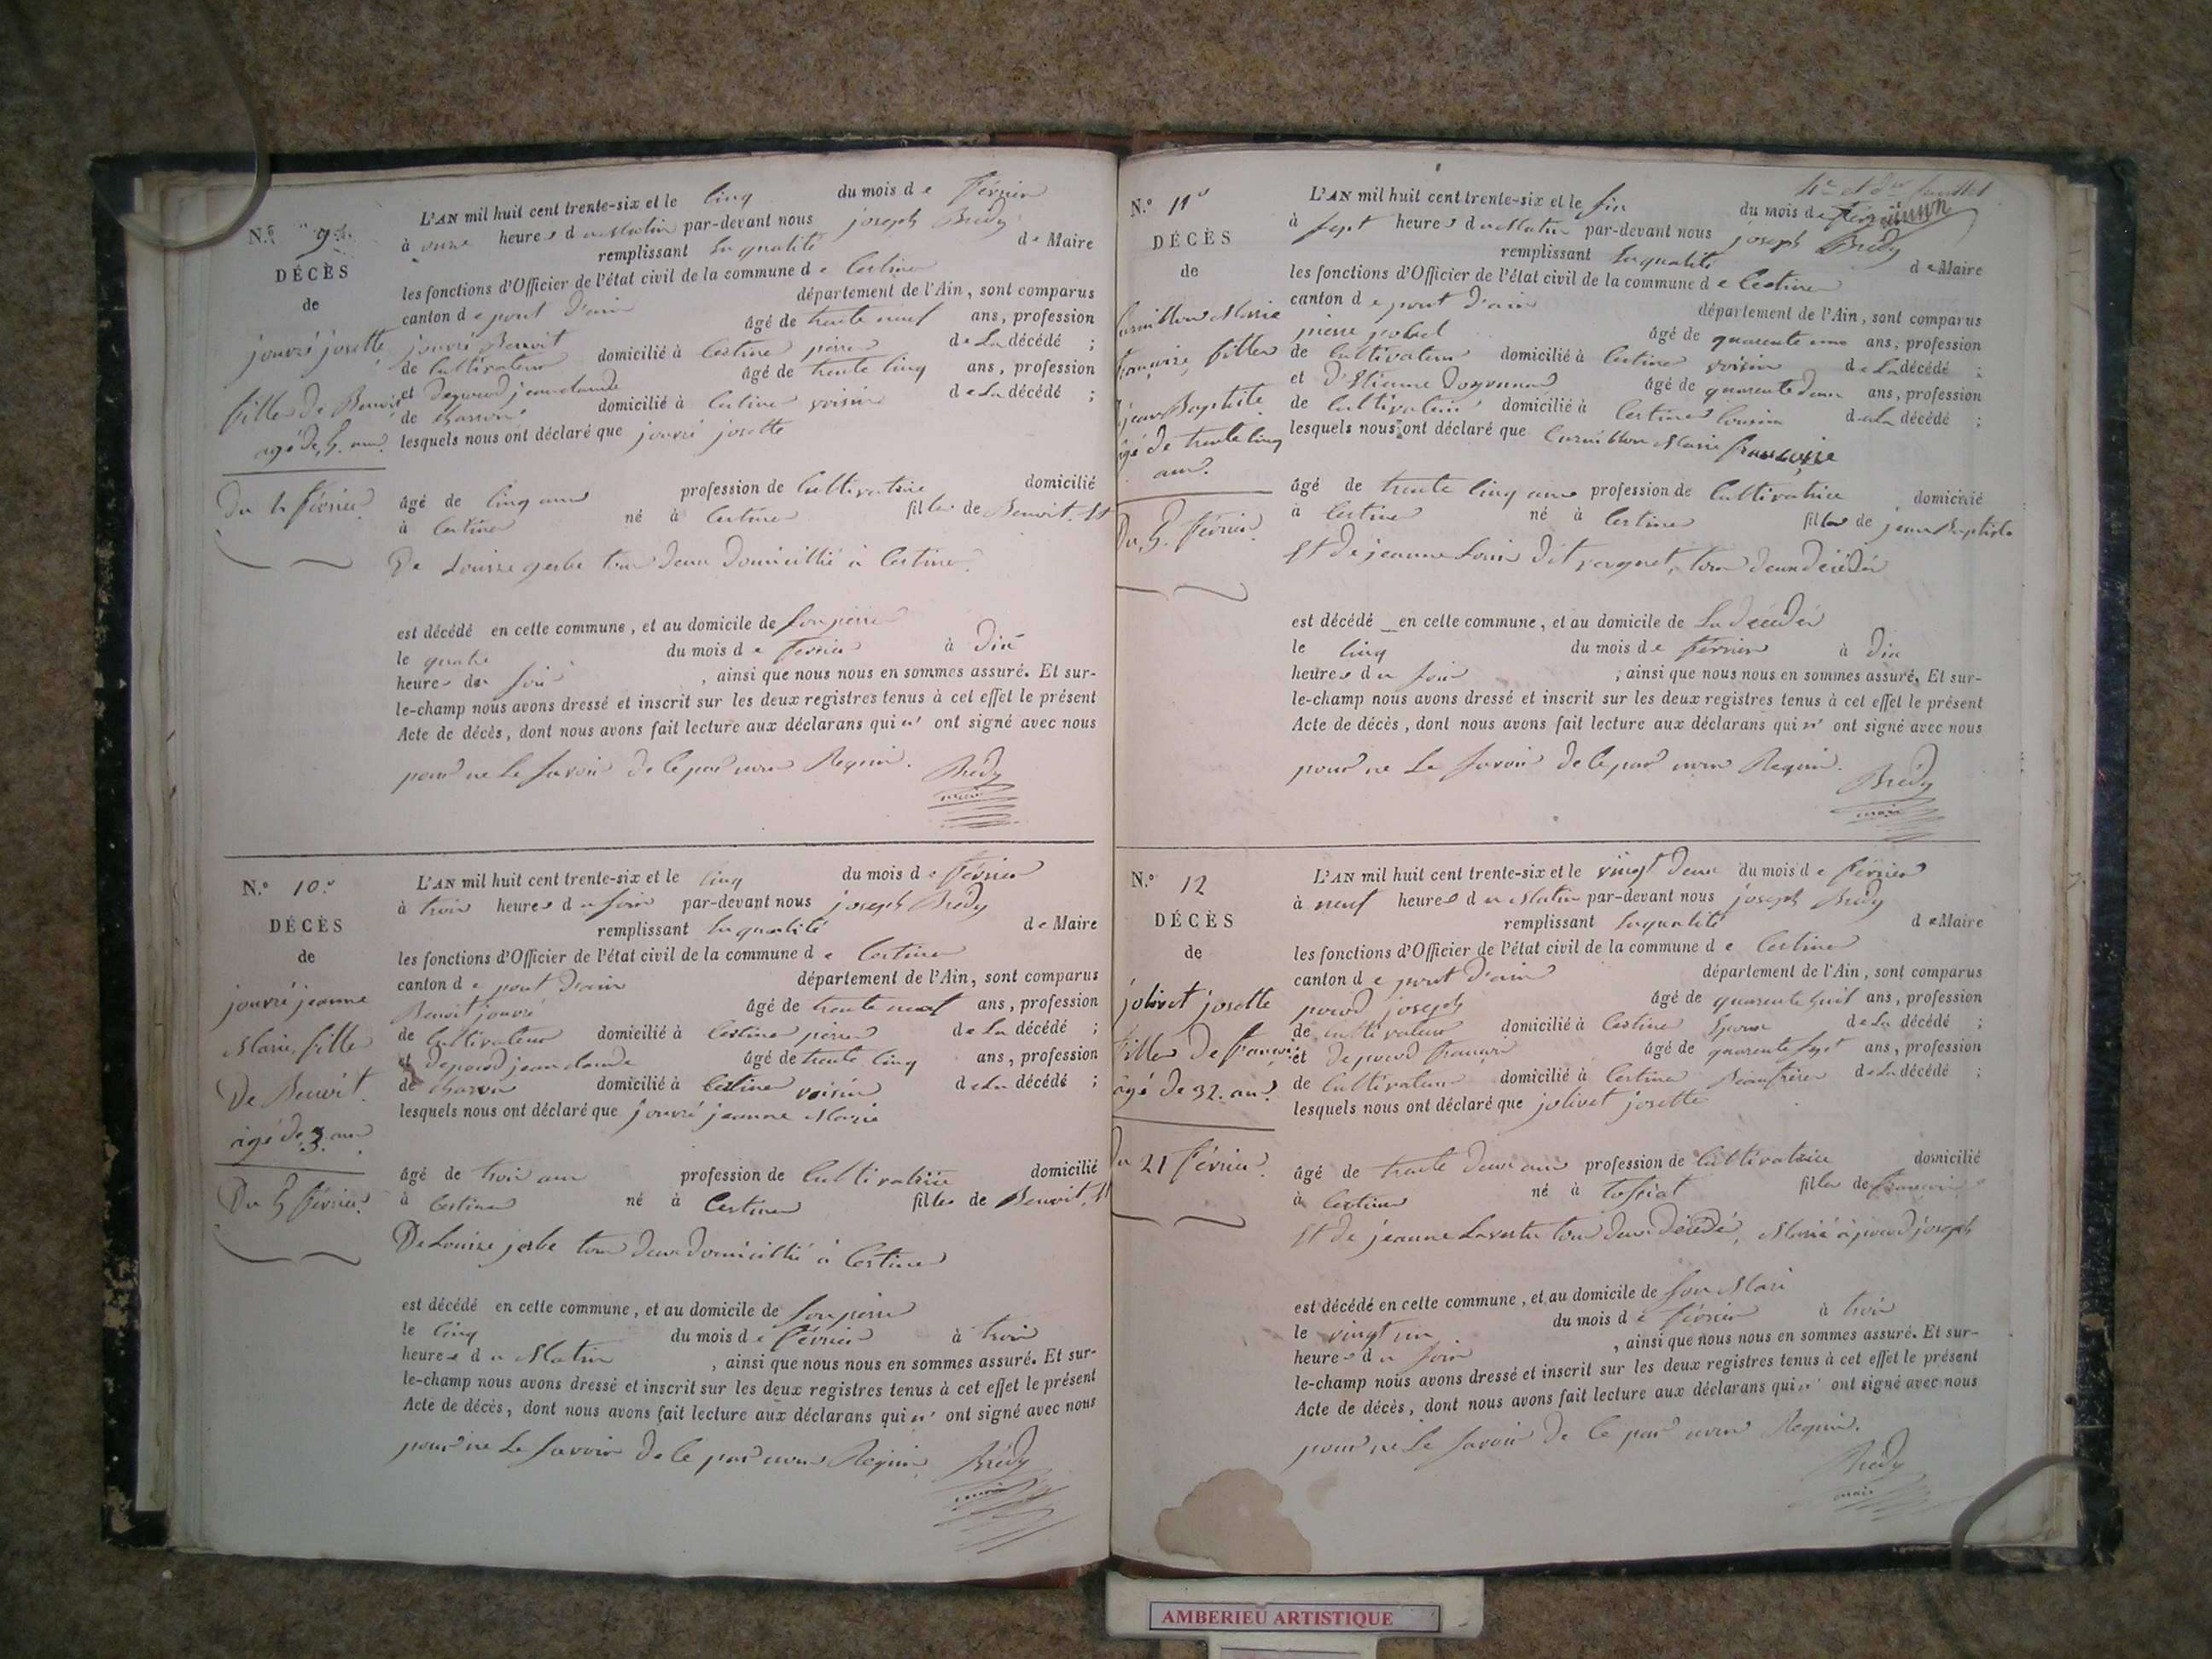 N.º 9.
DÉCÈS
de
jouvré josette
fille de Benoit
agé de 5. ans.
Du 4 février
L'AN mil huit cent trente-six et le cinq du mois de février
à onze heures du Matin par-devant nous joseph Bredy
remplissant en qualité de Maire
les fonctions d'Officier de l'état civil de la commune de Certines
canton de pont d'ain département de l'Ain, sont comparus
jouvré Benoit âgé de trente neuf ans, profession
de Cultivateur domicilié à Certines père de La décédé ;
et depoud jean claude âgé de trente cinq ans, profession
de domicilié à Certines voisin de La décédé ;
lesquels nous ont déclaré que jouvré josette
âgé de cinq ans profession de Cultivatrice domicilié
à Certines né à Certines fille de Benoit. Et
De Louise gerbe tous deux domicillié à Certines.
est décédé en cette commune, et au domicile de son père
le quatre du mois de février à dix
heures du soir , ainsi que nous nous en sommes assuré. Et sur-
le-champ nous avons dressé et inscrit sur les deux registres tenus à cet effet le présent
Acte de décès, dont nous avons fait lecture aux déclarans qui n' ont signé avec nous
pour ne Le savoir de ce par nous Requis. Bredy
maire
N.º 10.
DÉCÈS
de
jouvré jeanne
Marie, fille
De Benoit.
agé de 3. ans
Du 5 février
L'AN mil huit cent trente-six et le cinq du mois de février
à trois heures du soir par-devant nous joseph Bredy
remplissant en qualité de Maire
les fonctions d'Officier de l'état civil de la commune de Certines
canton de pont d'ain département de l'Ain, sont comparus
Benoit jouvré âgé de trente neuf ans, profession
de Cultivateur domicilié à Certines père de La décédé ;
et depoud jean claude âgé de trente cinq ans, profession
de domicilié à Certines voisin de La décédé ;
lesquels nous ont déclaré que jouvré jeanne Marie
âgé de trois ans profession de Cultivatrice domicilié
à Certines né à Certines fille de Benoit. Et
De Louise jerbe tous deux domicillié à Certines
est décédé en cette commune, et au domicile de son père
le cinq du mois de février à trois
heures du Matin , ainsi que nous nous en sommes assuré. Et sur-
le-champ nous avons dressé et inscrit sur les deux registres tenus à cet effet le présent
Acte de décès, dont nous avons fait lecture aux déclarans qui n' ont signé avec nous
pour ne Le savoir de ce par nous Requis Bredy
maire
4e et der feuillet
N.º 11
DÉCÈS
de
Marie
françoise, fille de
jean Baptiste
agé de trente cinq
ans.
Du 5. février.
L'AN mil huit cent trente-six et le six du mois de février
à sept heures du Matin par-devant nous joseph Bredy
remplissant en qualité de Maire
les fonctions d'Officier de l'état civil de la commune de Certines
canton de pont d'ain département de l'Ain, sont comparus
pierre âgé de quarente ans, profession
de Cultivateur domicilié à Certines voisin de La décédé ;
et d'Etienne âgé de quarente deux ans, profession
de Cultivateur domicilié à Certines Cousin de La décédé ;
lesquels nous ont déclaré que Marie françoise
âgé de trente cinq ans profession de Cultivatrice domicilié
à Certines né à Certines fille de jean Baptiste
Et de jeanne tous deux décédés
est décédé en cette commune, et au domicile de La décédée
le cinq du mois de février à dix
heures du soir ; ainsi que nous nous en sommes assuré. Et sur-
le-champ nous avons dressé et inscrit sur les deux registres tenus à cet effet le présent
Acte de décès, dont nous avons fait lecture aux déclarans qui n' ont signé avec nous
pour ne Le savoir de ce par nous Requis. Bredy
maire
N.º 12
DÉCÈS
de
jolivet josette
fille De françois
âgé de 32. ans.
Du 21 février.
L'AN mil huit cent trente-six et le vingt deux du mois de février
à neuf heures du Matin par-devant nous joseph Bredy
remplissant en qualité de Maire
les fonctions d'Officier de l'état civil de la commune de Certines
canton de pont d'ain département de l'Ain, sont comparus
poud joseph âgé de quarente huit ans, profession
de cultivateur domicilié à Certines Epoux de La décédé ;
et depoud françois âgé de quarente sept ans, profession
de Cultivateur domicilié à Certines Beaufrère de La décédé ;
lesquels nous ont déclaré que jolivet josette
âgé de trente deux ans profession de Cultivatrice domicilié
à Certines né à tossiat fille de françois
Et de jeanne tous deux décédé, Marié à poud joseph
est décédé en cette commune, et au domicile de son Mari
le vingt un du mois de février à trois
heures du soir , ainsi que nous nous en sommes assuré. Et sur-
le-champ nous avons dressé et inscrit sur les deux registres tenus à cet effet le présent
Acte de décès, dont nous avons fait lecture aux déclarans qui n' ont signé avec nous
pour ne Le savoir de ce par nous Requis. Bredy
maire
AMBERIEU ARTISTIQUE